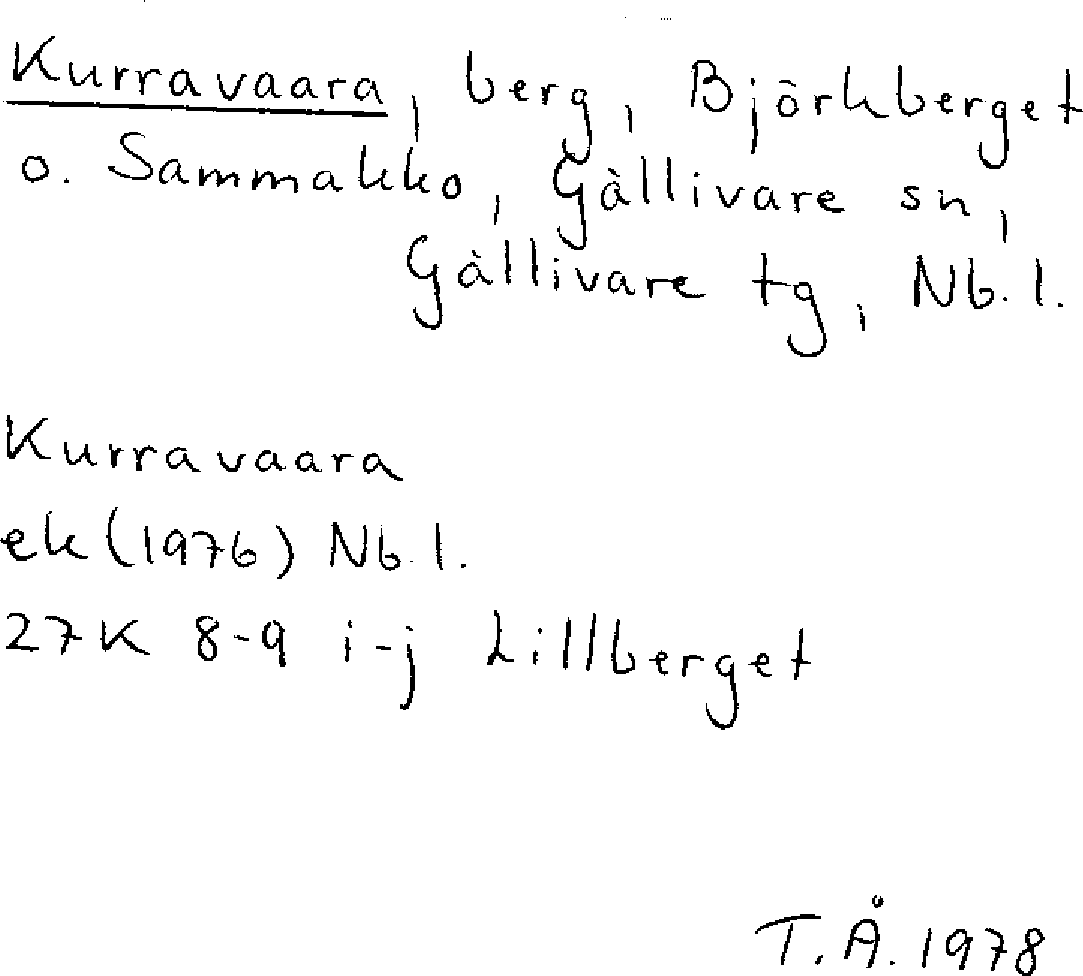 Kurravaara, berg, Björkberget
o. Sammakko, Gällivare sn,
Gällivare tg, Nb. l.
Kurravaara
ek (1976) Nb. l.
27K 8-9 i-j Lillberget
T.Å. 1978